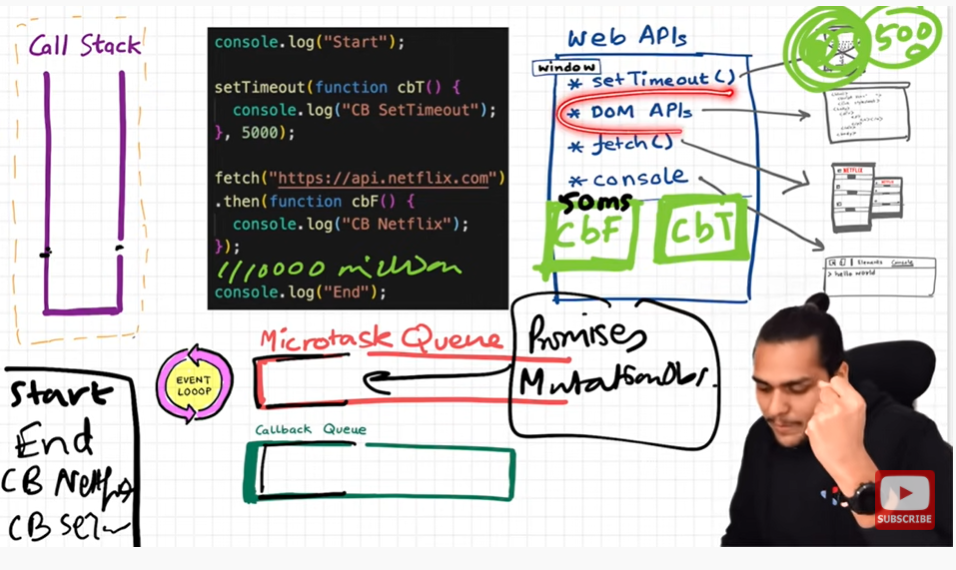 Call Stack
console.log("Start");
setTimeout(function cbT() {
console.log("CB SetTimeout");
}, 5000);
fetch("https://api.netflix.com")
.then(function cbF() {
console.log("CB Netflix");
});
10000 million
console.log("End");
Web APIs
window
* setTimeout()
* DOM APIs
* fetch()
* console
50ms
CbF
CbT
500
NETFLIX
Elements Console
> hello world
Microtask Queue
Promises
MutationObs.
EVENT
LOOOP
Callback Queue
Start
End
CB Netflix
CB Set
SUBSCRIBE